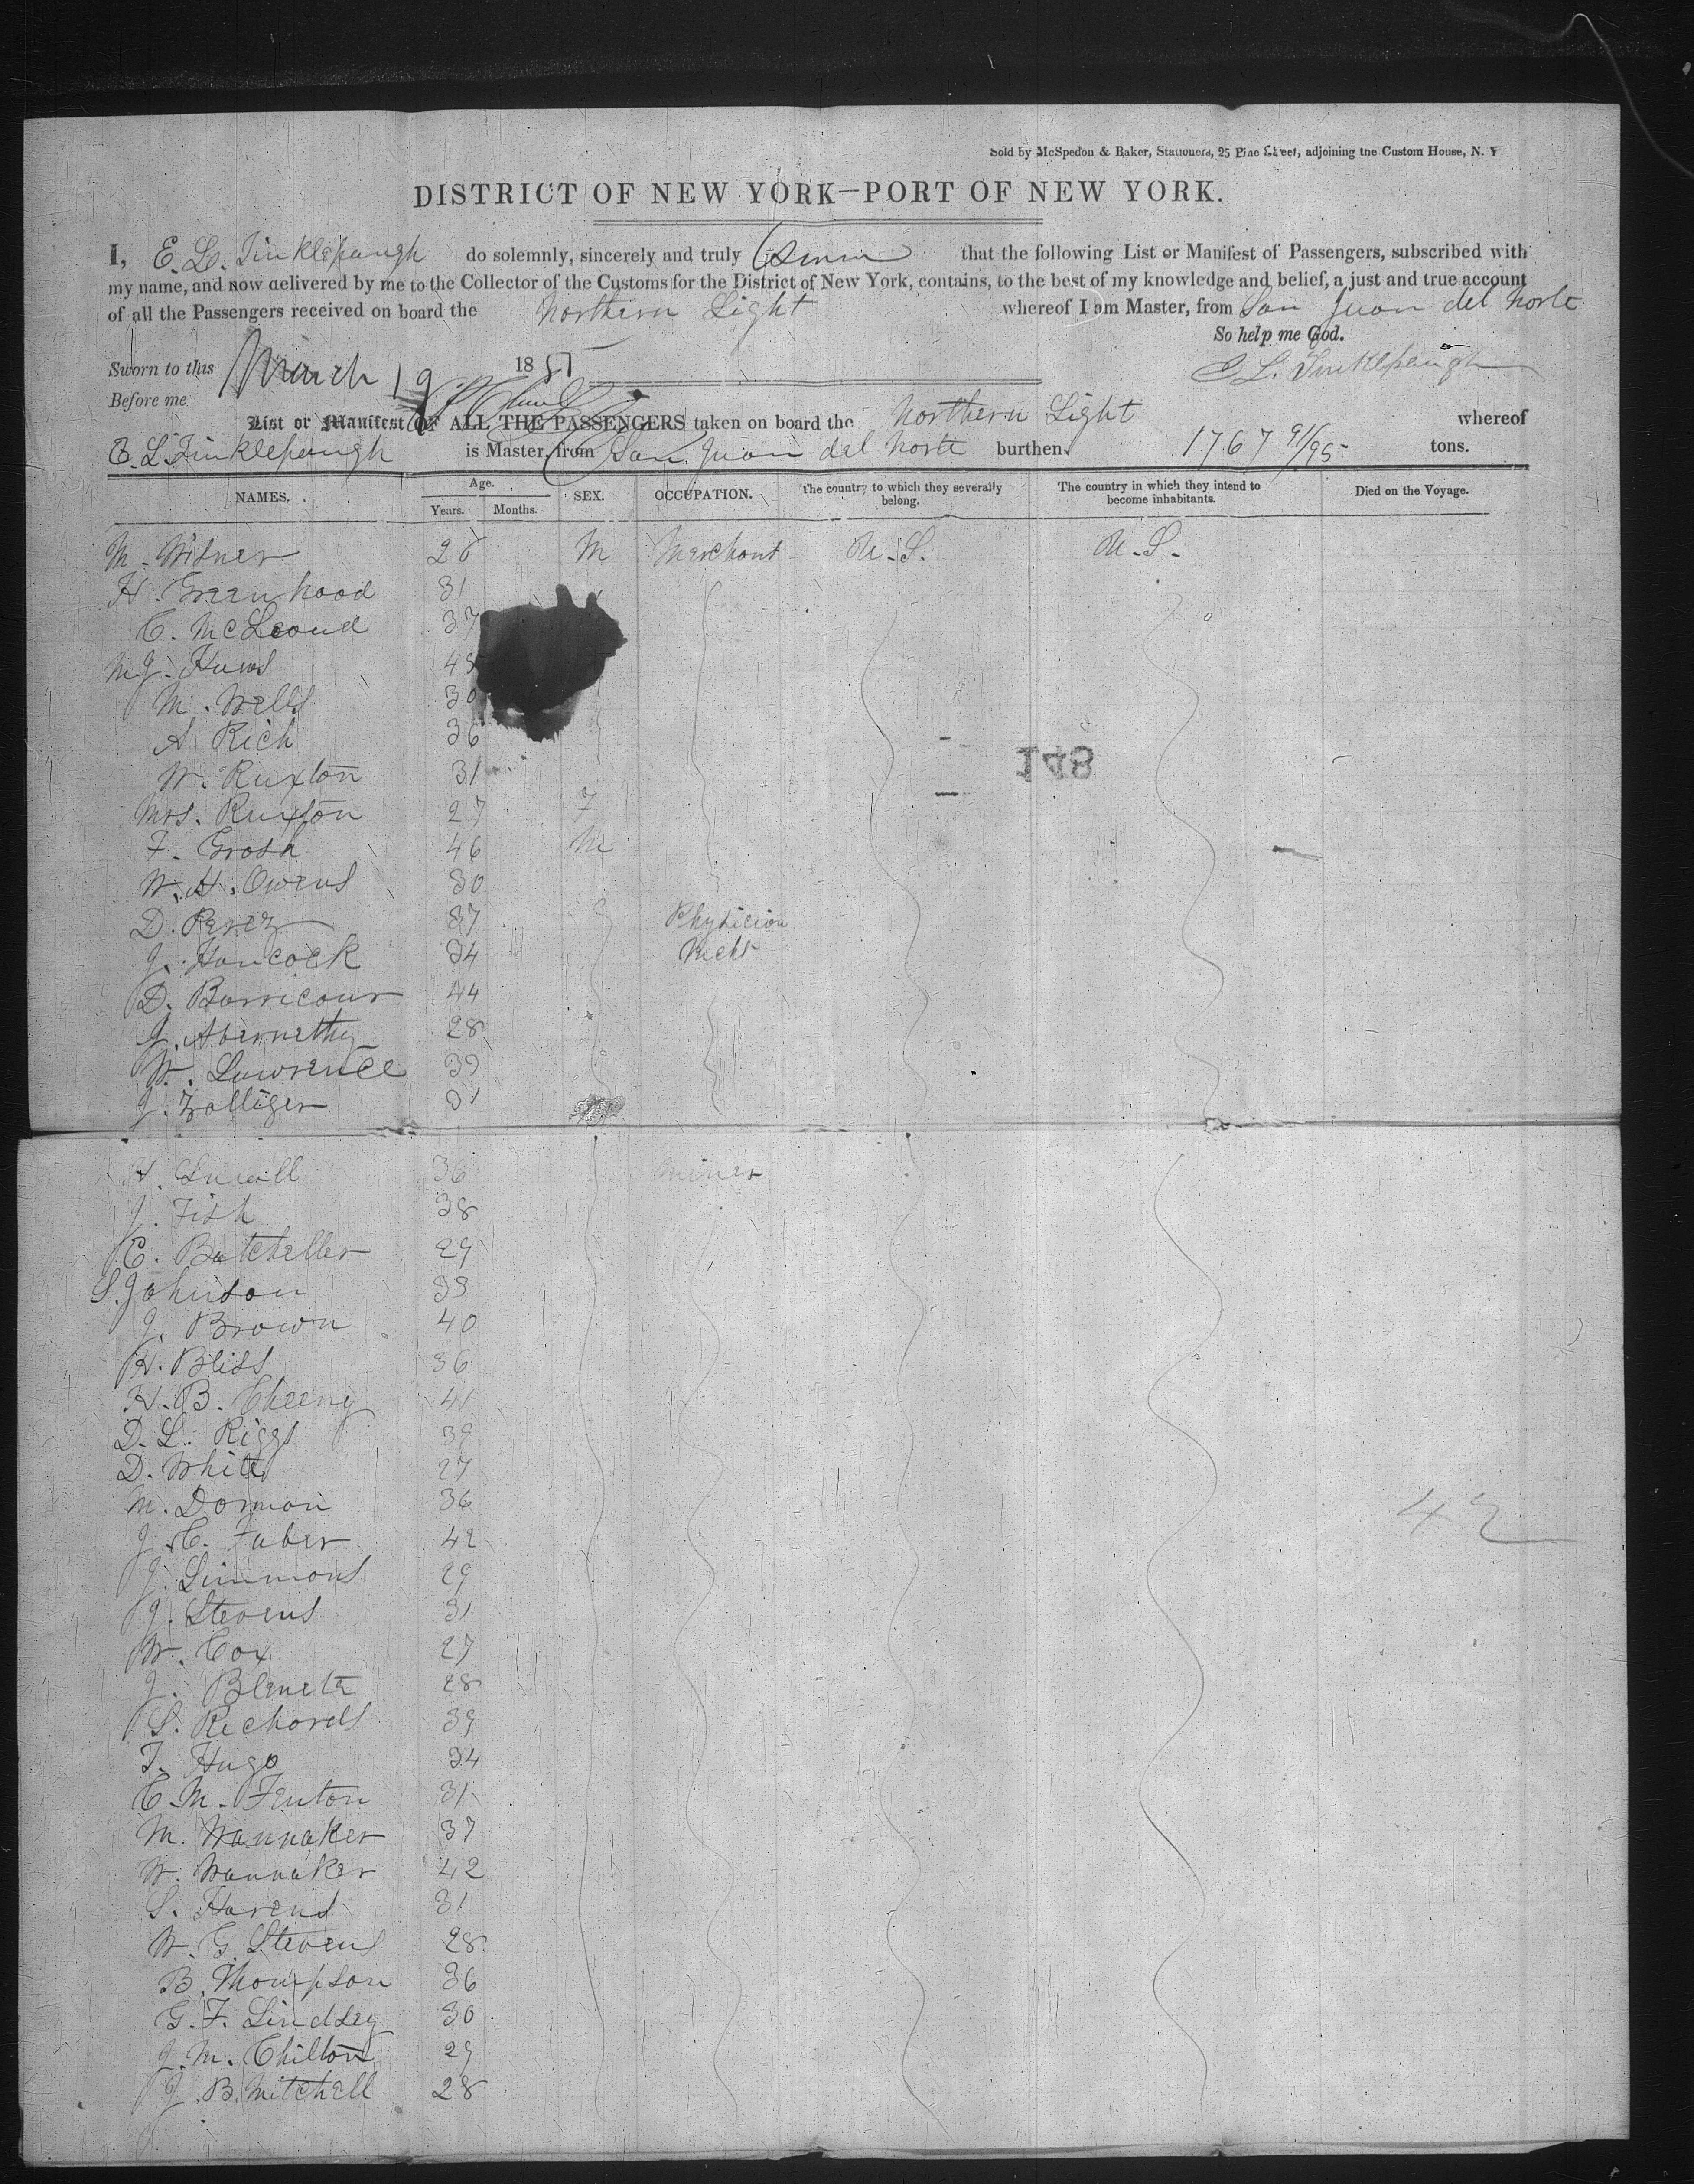 Sold by McSpedon & Baker, Stationers, 25 Pine Street, adjoining the Custom House, N. Y
DISTRICT OF NEW YORK—PORT OF NEW YORK.
I, E. L. Tinklepaugh do solemnly, sincerely and truly Swear that the following List or Manifest of Passengers, subscribed with
my name, and now delivered by me to the Collector of the Customs for the District of New York, contains, to the best of my knowledge and belief, a just and true account
of all the Passengers received on board the Northern Light whereof I am Master, from San Juan del Norte
So help me God.
Sworn to this March 19 185
E L. Tinklepaugh
Before me
List or Manifest OF ALL THE PASSENGERS taken on board the Northern Light whereof
E. L. Tinklepaugh is Master, from San Juan del Norte burthen 1767 91/95 tons.
NAMES. Age. Years. Months. SEX. OCCUPATION. The country to which they severally belong. The country in which they intend to become inhabitants. Died on the Voyage.
M. 26 M Merchant U.S. U.S.
H. Greenhood 31
C. McLeoud 37
M.J. 45
M. Wells 30
A Rich 36
148
W. Ruxton 31
Mrs. Ruxton 27 F
F. Grosh 46 M
W. H. Owens 30
D. Perez 37 Physician
J. Hancock 34 Mcht
D. Barricour 44
J. Abernethy 28
W. Lawrence 39
J. Zolliger 31
H. 36 Miner
J. Fish 38
C. Batcheller 29
S. Johnson 33
J. Brown 40
H. Bliss 36
H. B. Cheeny 41
D. L. Riggs 39
D. White 27
M. Dorman 36
42
J. C. Faber 42
J. Simmons 29
J. Stevens 31
W. Cox 27
J. 28
S. Richards 39
T. Hugo 34
C. M. Fenton 31
M. Wannaker 37
W. Wannaker 42
S. Havens 31
W. G. Stevens 28
B. Thompson 36
G. F. Lindsey 30
J. M. Chilton 29
J. B. Mitchell 28